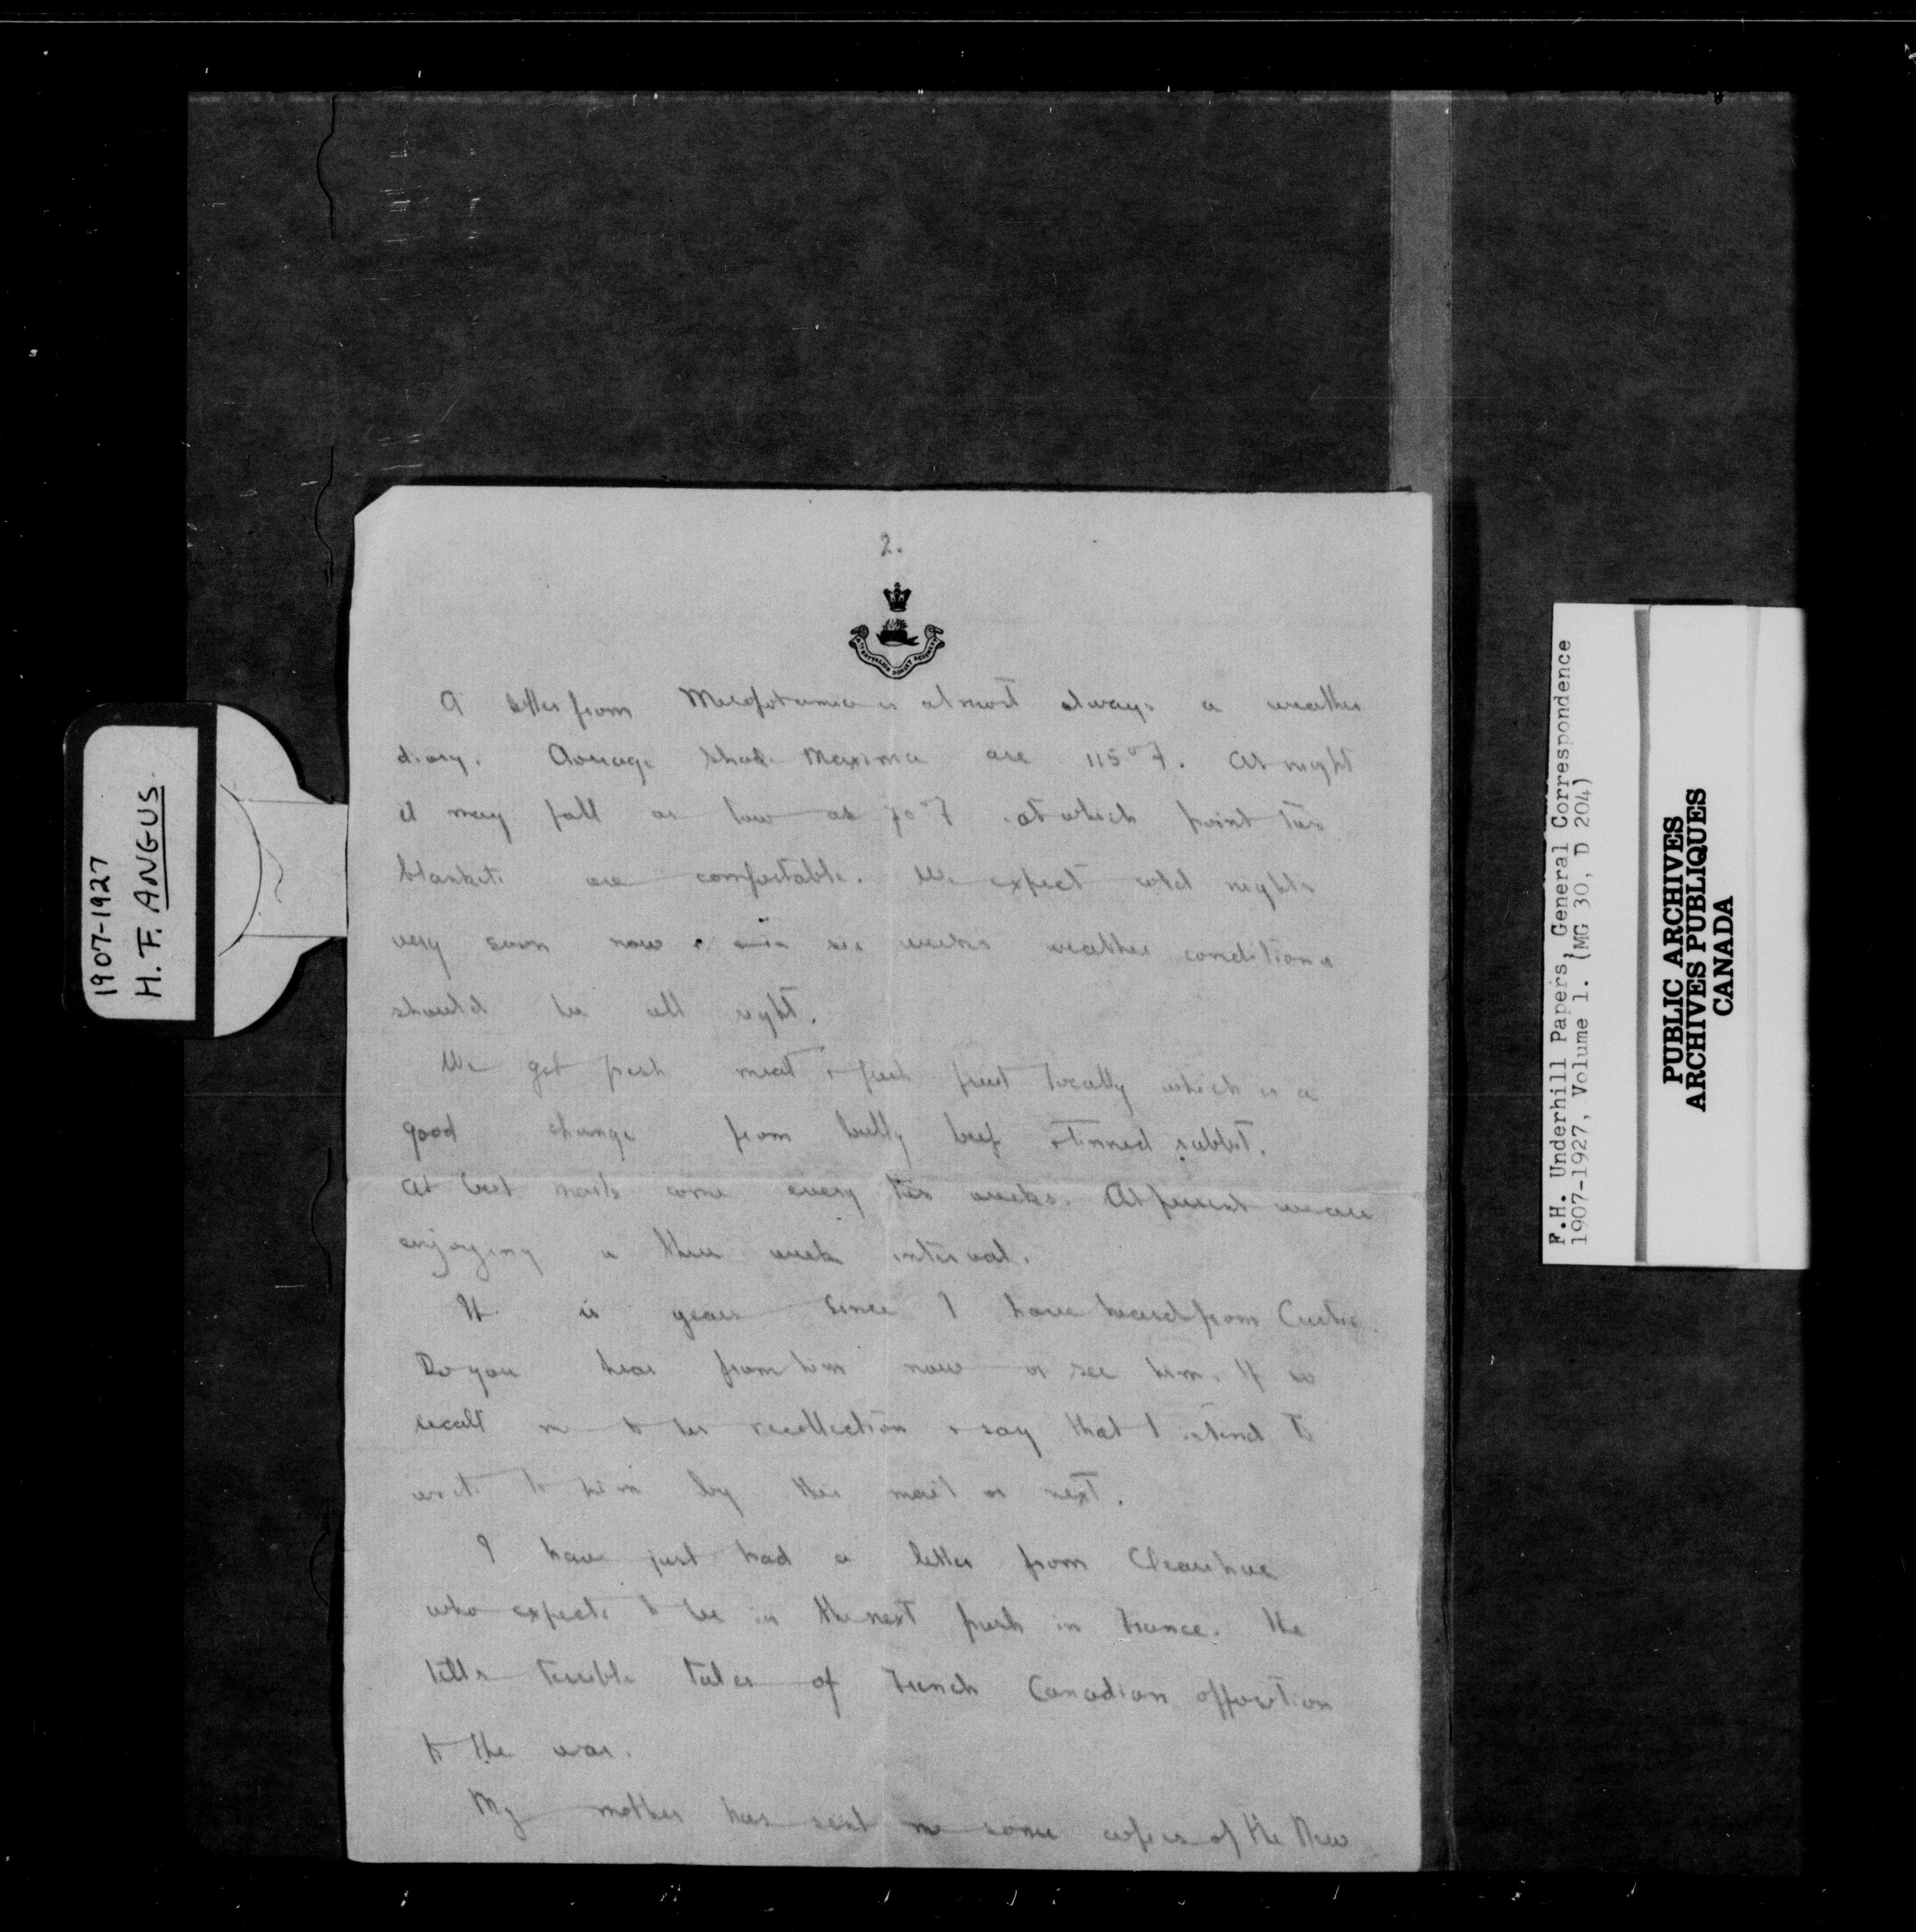 2.
4TH BATTALION DORSET REGIMENT
A letter from Mesopotamia is almost always a weather
diary. Average shade maxima are 115°F. At night
it may fall as low as 70°F at which point two
blankets are comfortable. We expect cold nights
very soon now & in six weeks weather conditions
should be all right.
We get fresh meat & fresh fruit locally which is a
good change from bully beef & tinned rabbit.
At best mails come every two weeks. At present we are
enjoying a three week interval.
It is years since I have heard from
Do you hear from him now or see him. If so
recall me to his recollection & say that I intend to
write to him by this mail or next.
I have just had a letter from Clearihue
who expects to be in the next push in France. He
tells terrible tales of French Canadian opposition
to the war.
My mother has sent me some copies of the New
1907-1927
H. F. ANGUS.
F.H. Underhill Papers, General Correspondence
1907-1927, Volume 1. (MG 30, D 204)
PUBLIC ARCHIVES
ARCHIVES PUBLIQUES
CANADA